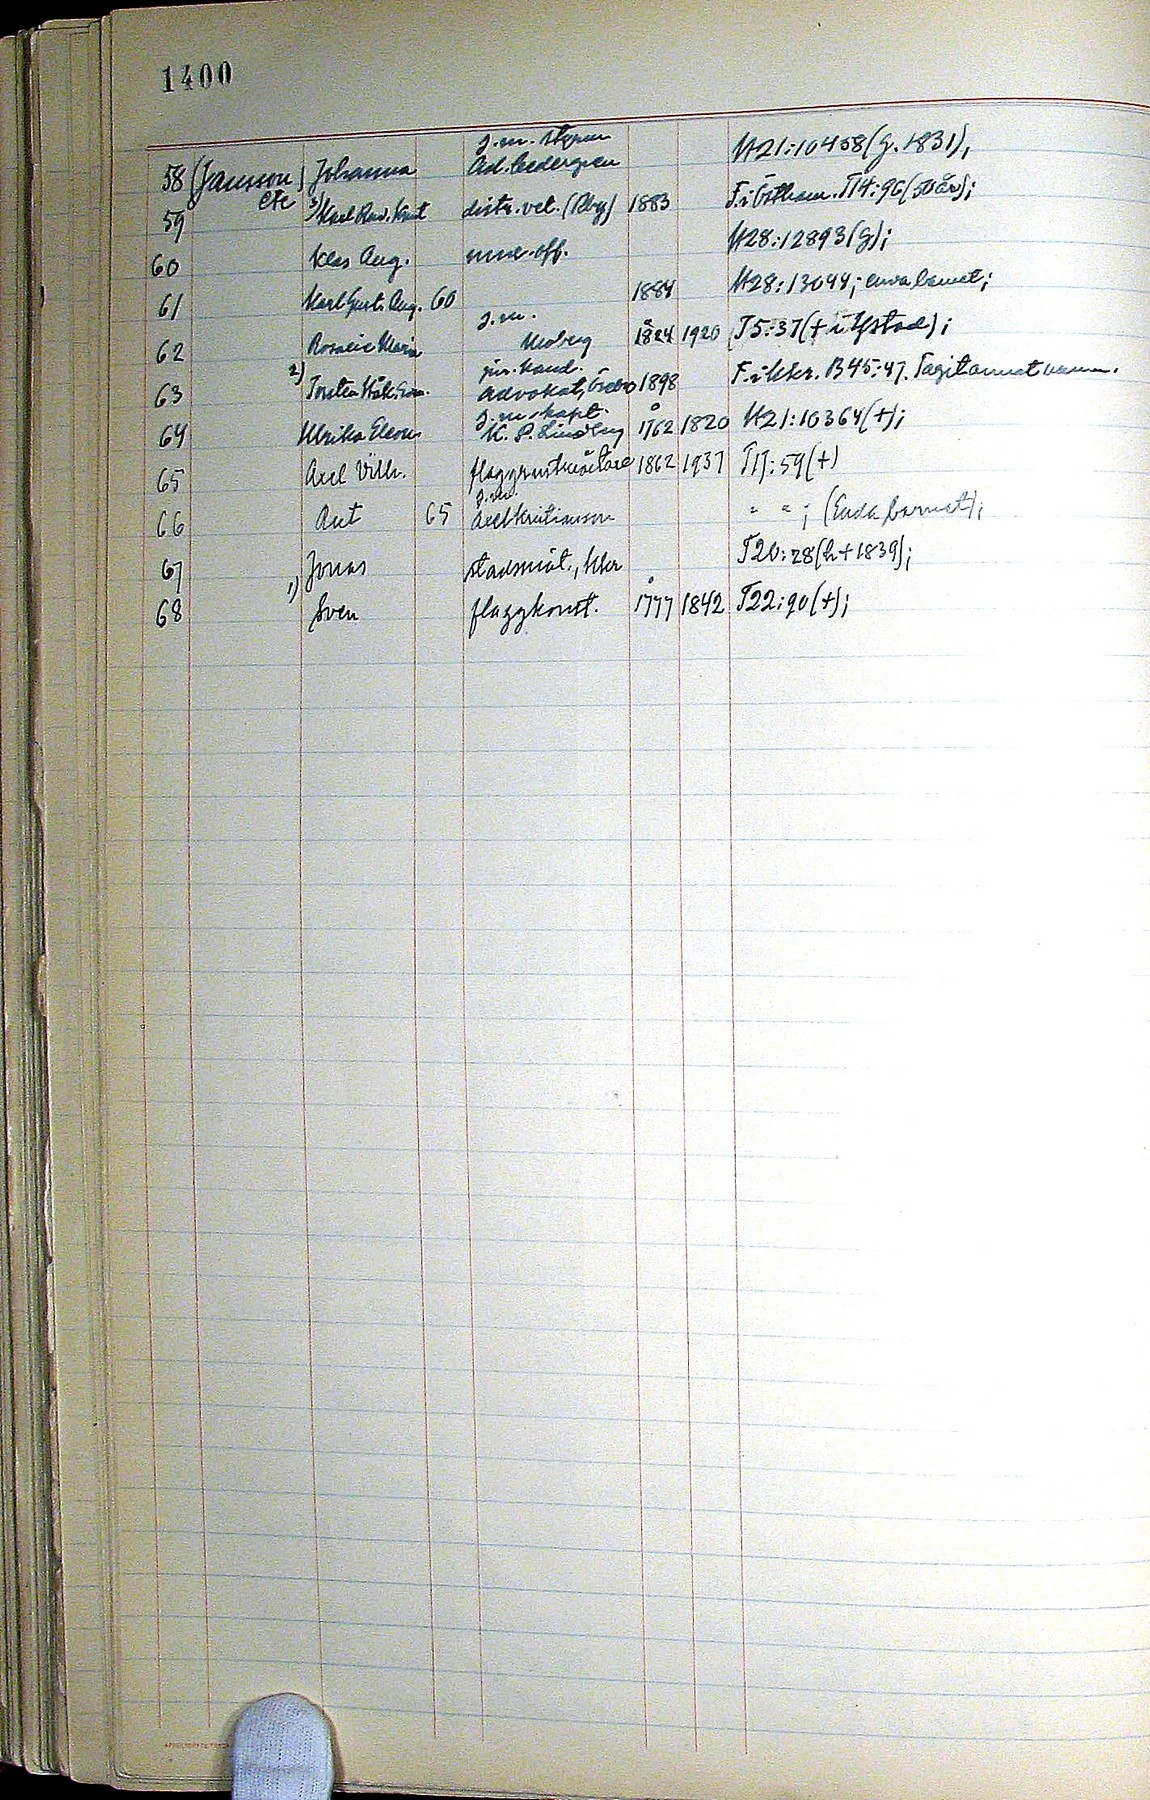 1400
58 (Jansson etc) Johanna g.m. Ad. Cedergren H21:10458 (g. 1831),
59 3) Karl Rud. Knut distr.vet. (Rby) 1883 F. i Östham. T14:96 (50 år);
60 Klas Aug. mus.off. H28:12893 (g);
61 Karl Gust. Aug. 60 1884 H28:13044; enda barnet;
62 Rosalie Maria g.m. Moberg 1824 1920 T5:37 (+ i Ystad);
63 2) Torsten jur.kand. advokat, Örebro 1898 F. i Kkr. B45:47. Tagit annat namn.
64 Ulrika Eleon. g.m. kapt. K. P. Lindberg 1762 1820 H21:10364 (+);
65 Axel Vilh. flaggrustmästare 1862 1937 T17:59 (+)
66 65 g.m. Axel Kristiansson " " ; (Enda barnet);
67 Jonas stadsmät., Kkr T20:28 (h+1839);
68 1) Sven flaggkonst. 1777 1842 T22:90 (+);